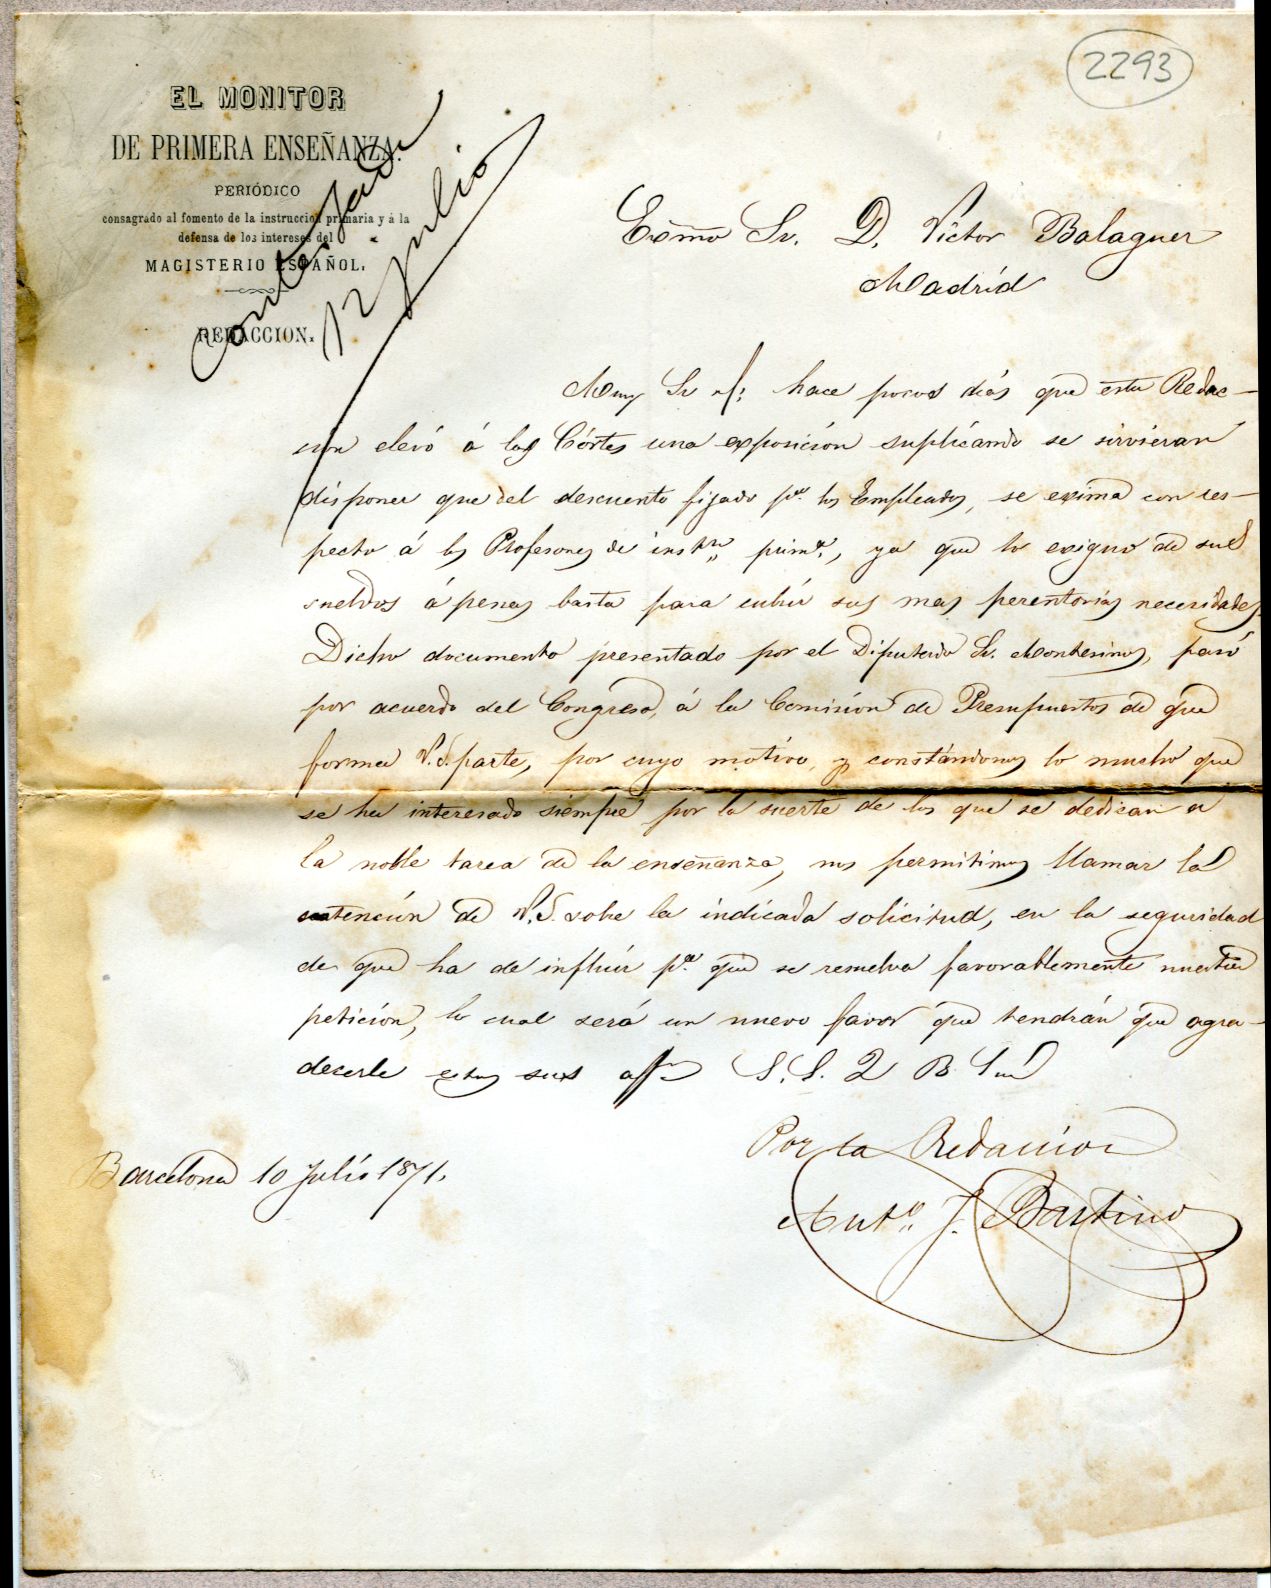 2293
EL MONITOR
DE PRIMERA ENSEÑANZA.
PERIÓDICO
consagrado al fomento de la instruccion primaria y á la
defensa de los intereses del
MAGISTERIO ESPAÑOL.
REDACCION.
Contestada
12 julio
Exmo Sr. D. Víctor Balaguer
Madrid
Muy Sr. hace pocos días que esta Redac-
ción elevó á las Córtes una exposición suplicando se sirvieran
disponer que del descuento fijado pa. los Empleados, se exima con res-
pecto á los Profesores de instn. prima., ya que lo exiguo de sus
sueldos ápenas basta para cubrir sus mas perentorias necesidades.
Dicho documento presentado por el Diputado Sr. Montesinos, pasó
por acuerdo del Congreso, á la Comisión de Presupuestos de que
forma V.S. parte, por cuyo motivo, y constándonos lo mucho que
se ha interesado siempre por la suerte de los que se dedican a
la noble tarea de la enseñanza, nos permitimos llamar la
atención de V.S. sobre la indicada solicitud, en la seguridad
de que ha de influir pa. que se resuelva favorablemente nuestra
petición, lo cual será un nuevo favor que tendrán que agra-
decerle estos sus affmos S. S. Q B S m
Por la Redacción
Barcelona 10 Julio 1871.
Anto. J. Bastinos